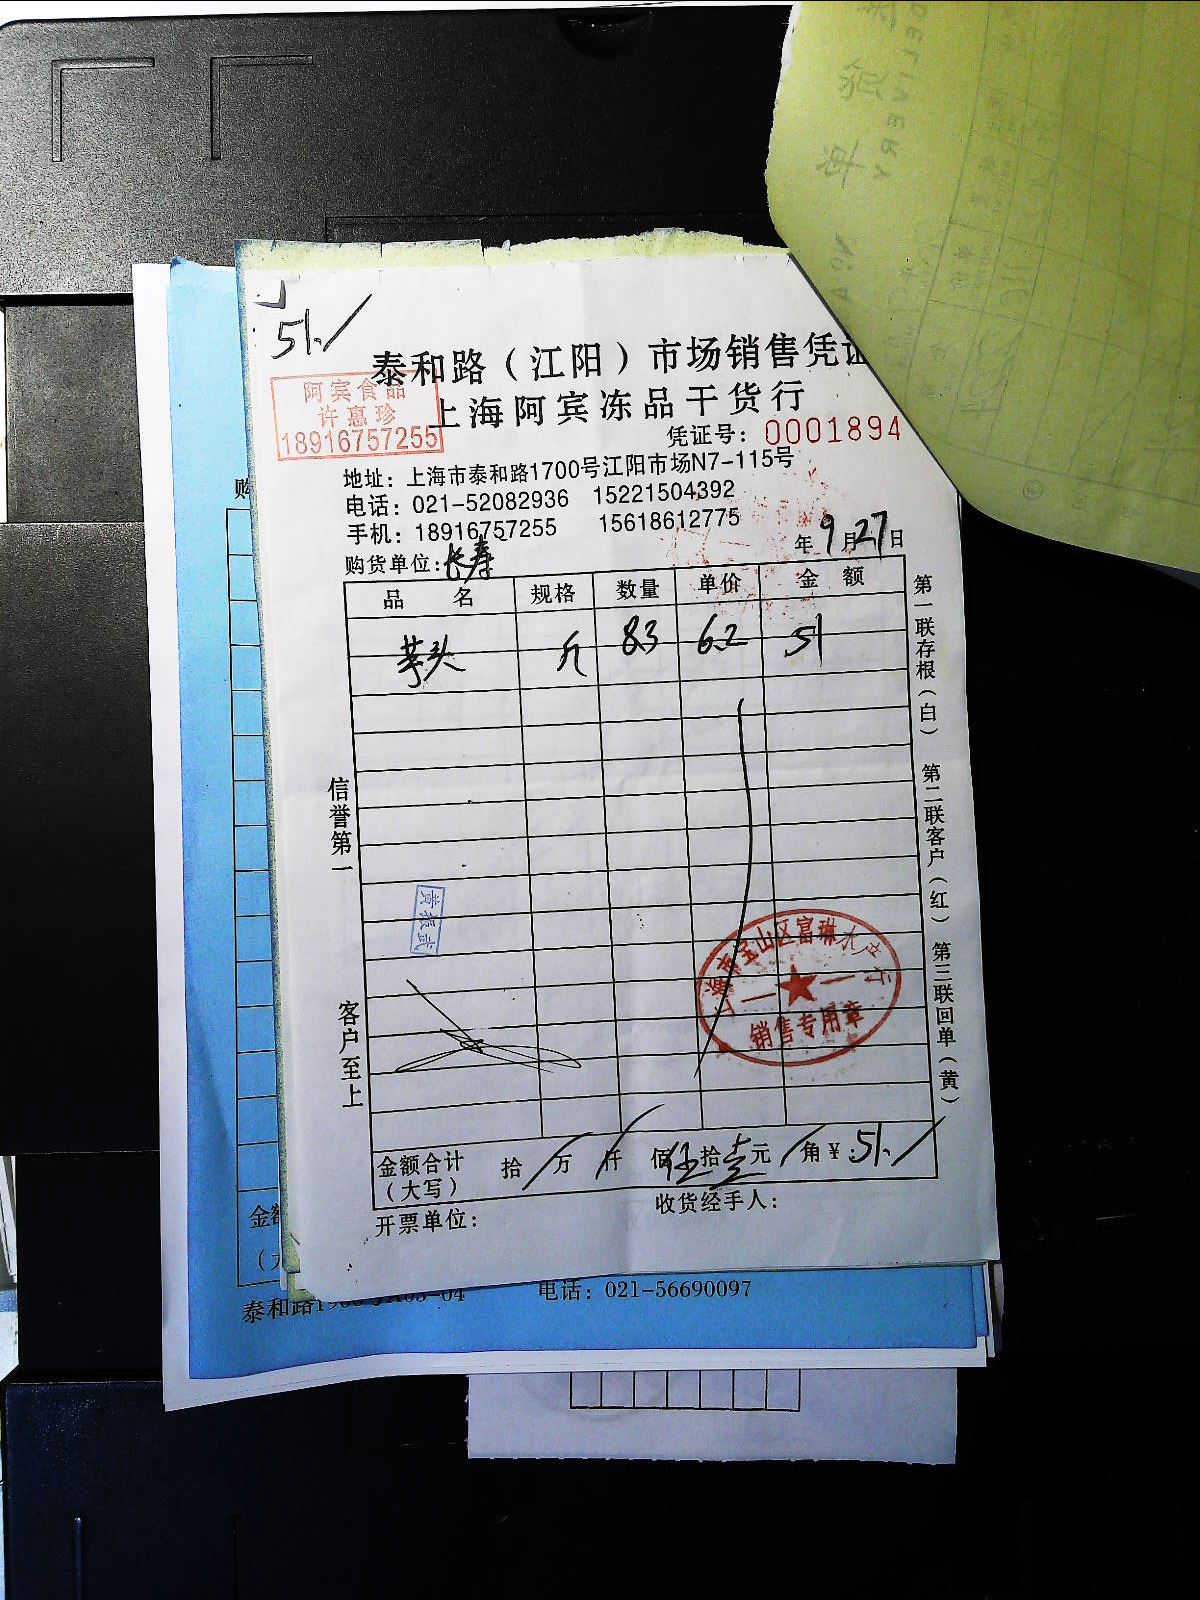 51.
泰和路（江阳）市场销售凭证
上海阿宾冻品干货行
阿宾食品
许惠珍
18916757255
凭证号：0001894
地址：上海市泰和路1700号江阳市场N7-115号
电话：021-52082936 15221504392
手机：18916757255 15618612775
购货单位：长寿 年9月27日
品名 规格 数量 单价 金额
芋头 斤 8.3 6.2 51
信誉第一
客户至上
第一联存根（白） 第二联客户（红） 第三联回单（黄）
黄振武
上海市宝山区富琳水产行
销售专用章
金额合计（大写） 拾 万 仟 佰伍拾壹元 角￥：51.
开票单位： 收货经手人：
购
金
泰和路 电话：021-56690097
DELIVERY